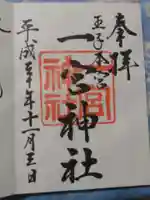 奉拝
王子本宮
一宮神社
平成三十年十一月三日